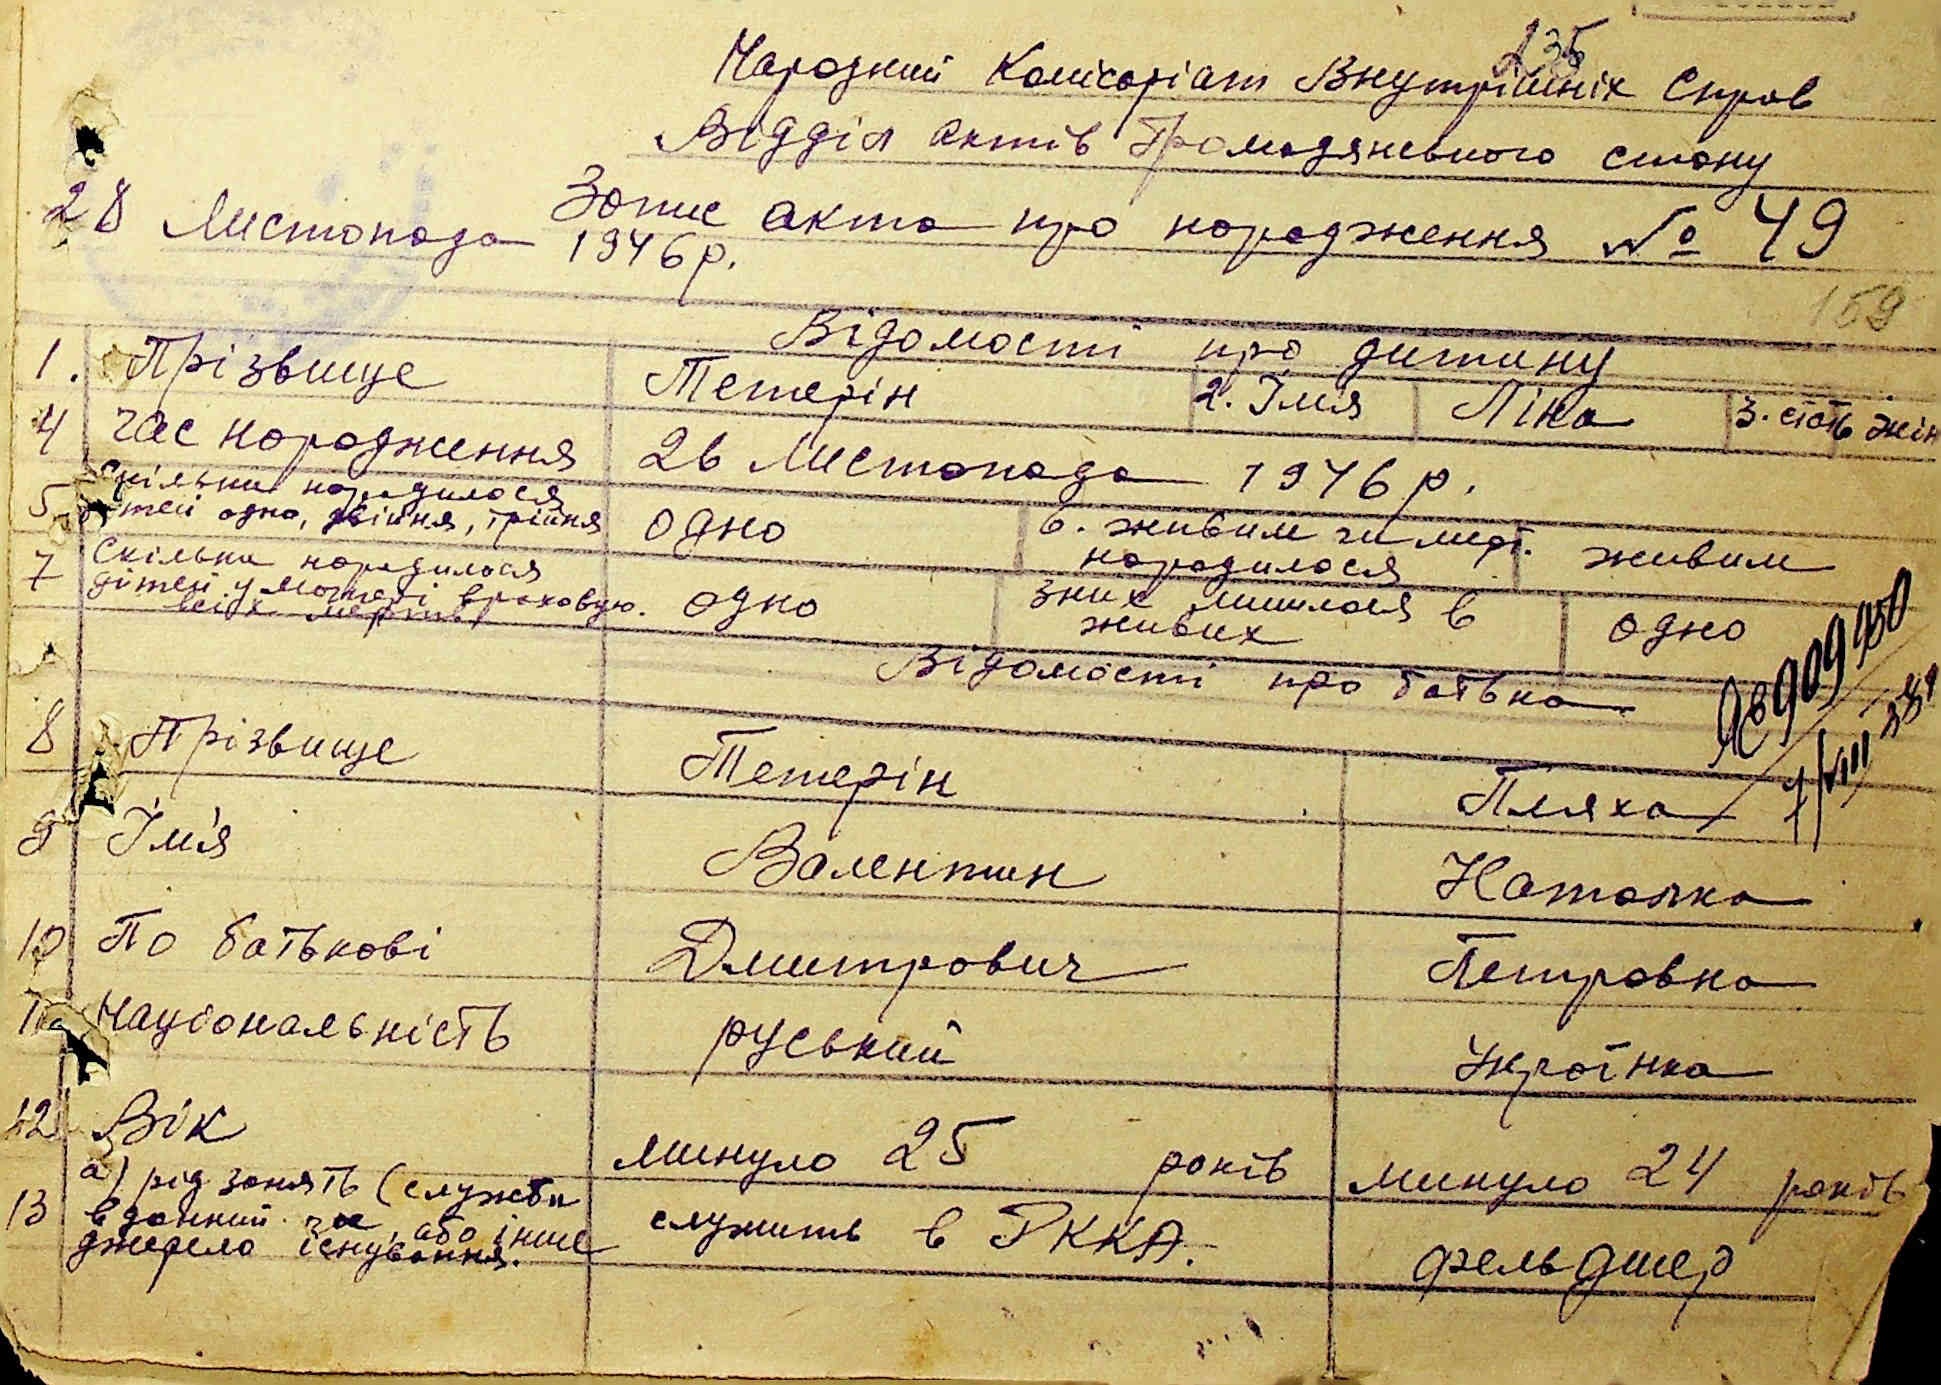 235
Народний Комісаріат Внутрішніх Справ
Відділ Актів Громадянського стану
Запис акта про народження № 49
28 Листопада 1946 р.
159
Відомості про дитину
1. Прізвище Тетерін 2. Імя Ліна 3. стать жін
4 час народження 26 Листопада 1946 р.
5 Скільки народилося дітей одно, двійня, трійня одно 6. живим чи мерт. народилося живим
7 Скільки народилося дітей у матері враховую. всіх мертвих одно з них лишилося в живих одно
Відомості про батька
8 Прізвище Тетерін Пляха
9 Ім'я Валентин Наталка
10 По батькові Дмитрович Петровна
11 Національність руський Українка
12 Вік минуло 25 років минуло 24 років
13 а) рід занять (служби в данний час, або інше джерело існування. служить в РККА. фельдшер